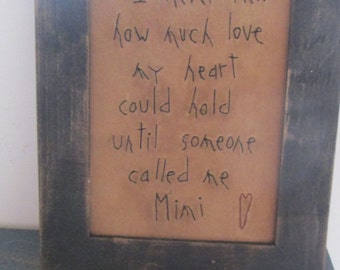 how much love
my heart
could hold
until someone
called me
Mimi